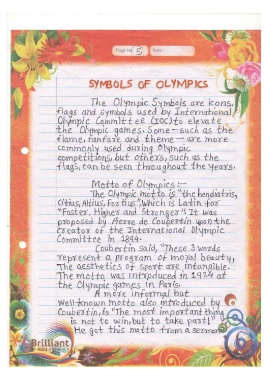 Page No. 5 Date:
SYMBOLS OF OLYMPICS
The Olympic Symbols are icons,
flags and symbols used by International
Olympic Committee (IOC) to elevate
the Olympic games. Some - such as the
flame, fanfare and theme - are more
commonly used during Olympic
competitions, but others, such as the
flags, can be seen throughout the years.
Motto of Olympics :-
The Olympic motto is "the hendiatris,
Citius, Altius, Fortius", Which is Latin for
"Faster, Higher and Stronger". It was
proposed by Pierre de Coubertin upon the
creator of the International Olympic
Committee in 1894.
Coubertin said, "These 3 words
represent a program of moral beauty,
The aesthetics of sport are intangible.
The motto was introduced in 1924 at
the Olympic games in Paris.
A more informal but
Well-known motto also introduced by
Coubertin, is "The most important thing
is not to win, but to take part!"
He got this motto from a sermon
Brilliant